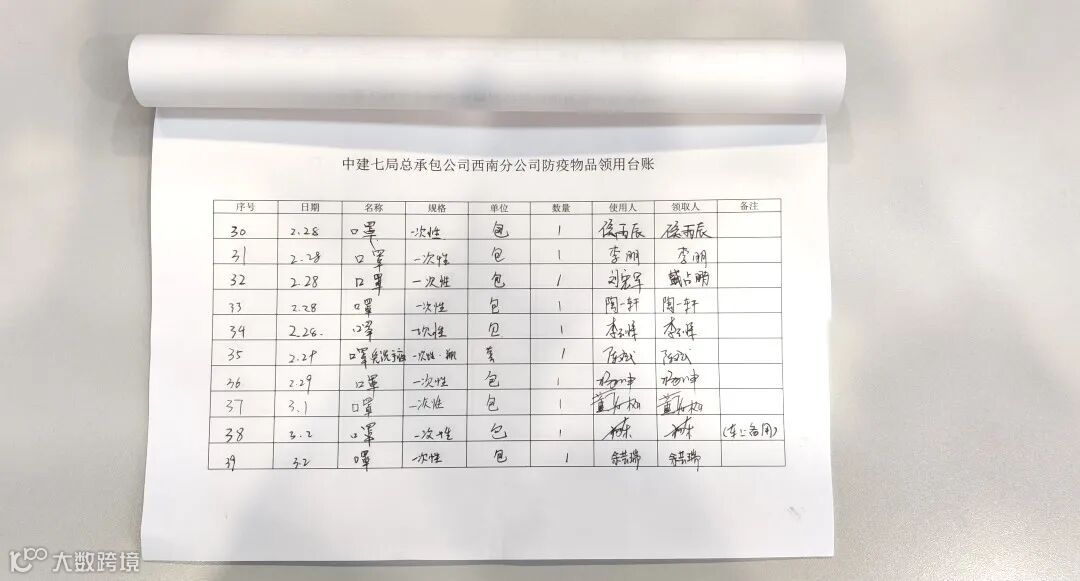 中建七局总承包公司西南分公司防疫物品领用台账
序号 日期 名称 规格 单位 数量 使用人 领取人 备注
30 2.28 口罩 一次性 包 1
31 2.28 口罩 一次性 包 1 李朋 李朋
32 2.28 口罩 一次性 包 1 刘宏军 戴占鹏
33 2.28 口罩 一次性 包 1 陶一轩 陶一轩
34 2.28. 口罩 一次性 包 1
35 2.29 口罩 免洗手液 一次性 套 1 陈斌 陈斌
36 2.29 口罩 一次性 包 1
37 3.1 口罩 一次性 包 1
38 3.2 口罩 一次性 包 1 (车上备用)
39 3.2 口罩 一次性 包 1 余芸瑞 余芸瑞
10100 大数跨境